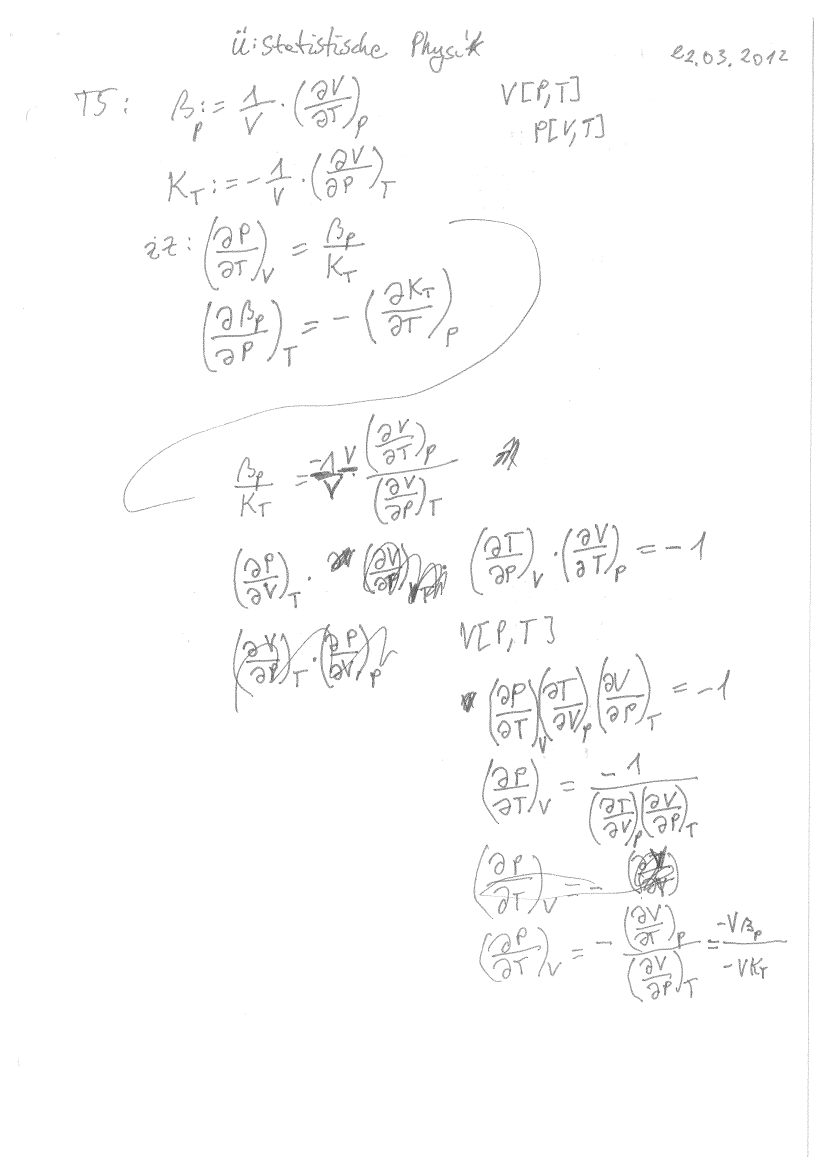 Ü: Statistische Physik 22.03.2012
T5: β_P := 1/V · (∂V/∂T)_P V[P,T]
P[V,T]
K_T := - 1/V · (∂V/∂P)_T
zZ: (∂P/∂T)_V = β_P/K_T
(∂β_P/∂P)_T = - (∂K_T/∂T)_P
β_P/K_T = -1/V · V (∂V/∂T)_P / (∂V/∂P)_T
(∂P/∂V)_T · (∂T/∂P)_V · (∂V/∂T)_P = -1
(∂V/∂P)_T · (∂P/∂V)_P V[P,T]
(∂P/∂T)_V (∂T/∂V)_P (∂V/∂P)_T = -1
(∂P/∂T)_V = -1 / (∂T/∂V)_P (∂V/∂P)_T
(∂P/∂T)_V = -
(∂P/∂T)_V = - (∂V/∂T)_P / (∂V/∂P)_T = -Vβ_P / -VK_T